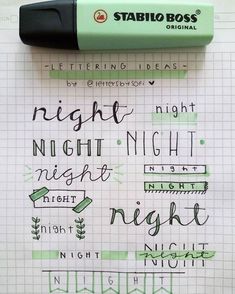 STABILO BOSS
ORIGINAL
- LETTERING IDEAS -
by @lettersbysofi ♥
night
night
NIGHT
NIGHT
night
NIGHT
NIGHT
NIGHT
night
night
NIGHT
NIGHT
night
NIGHT